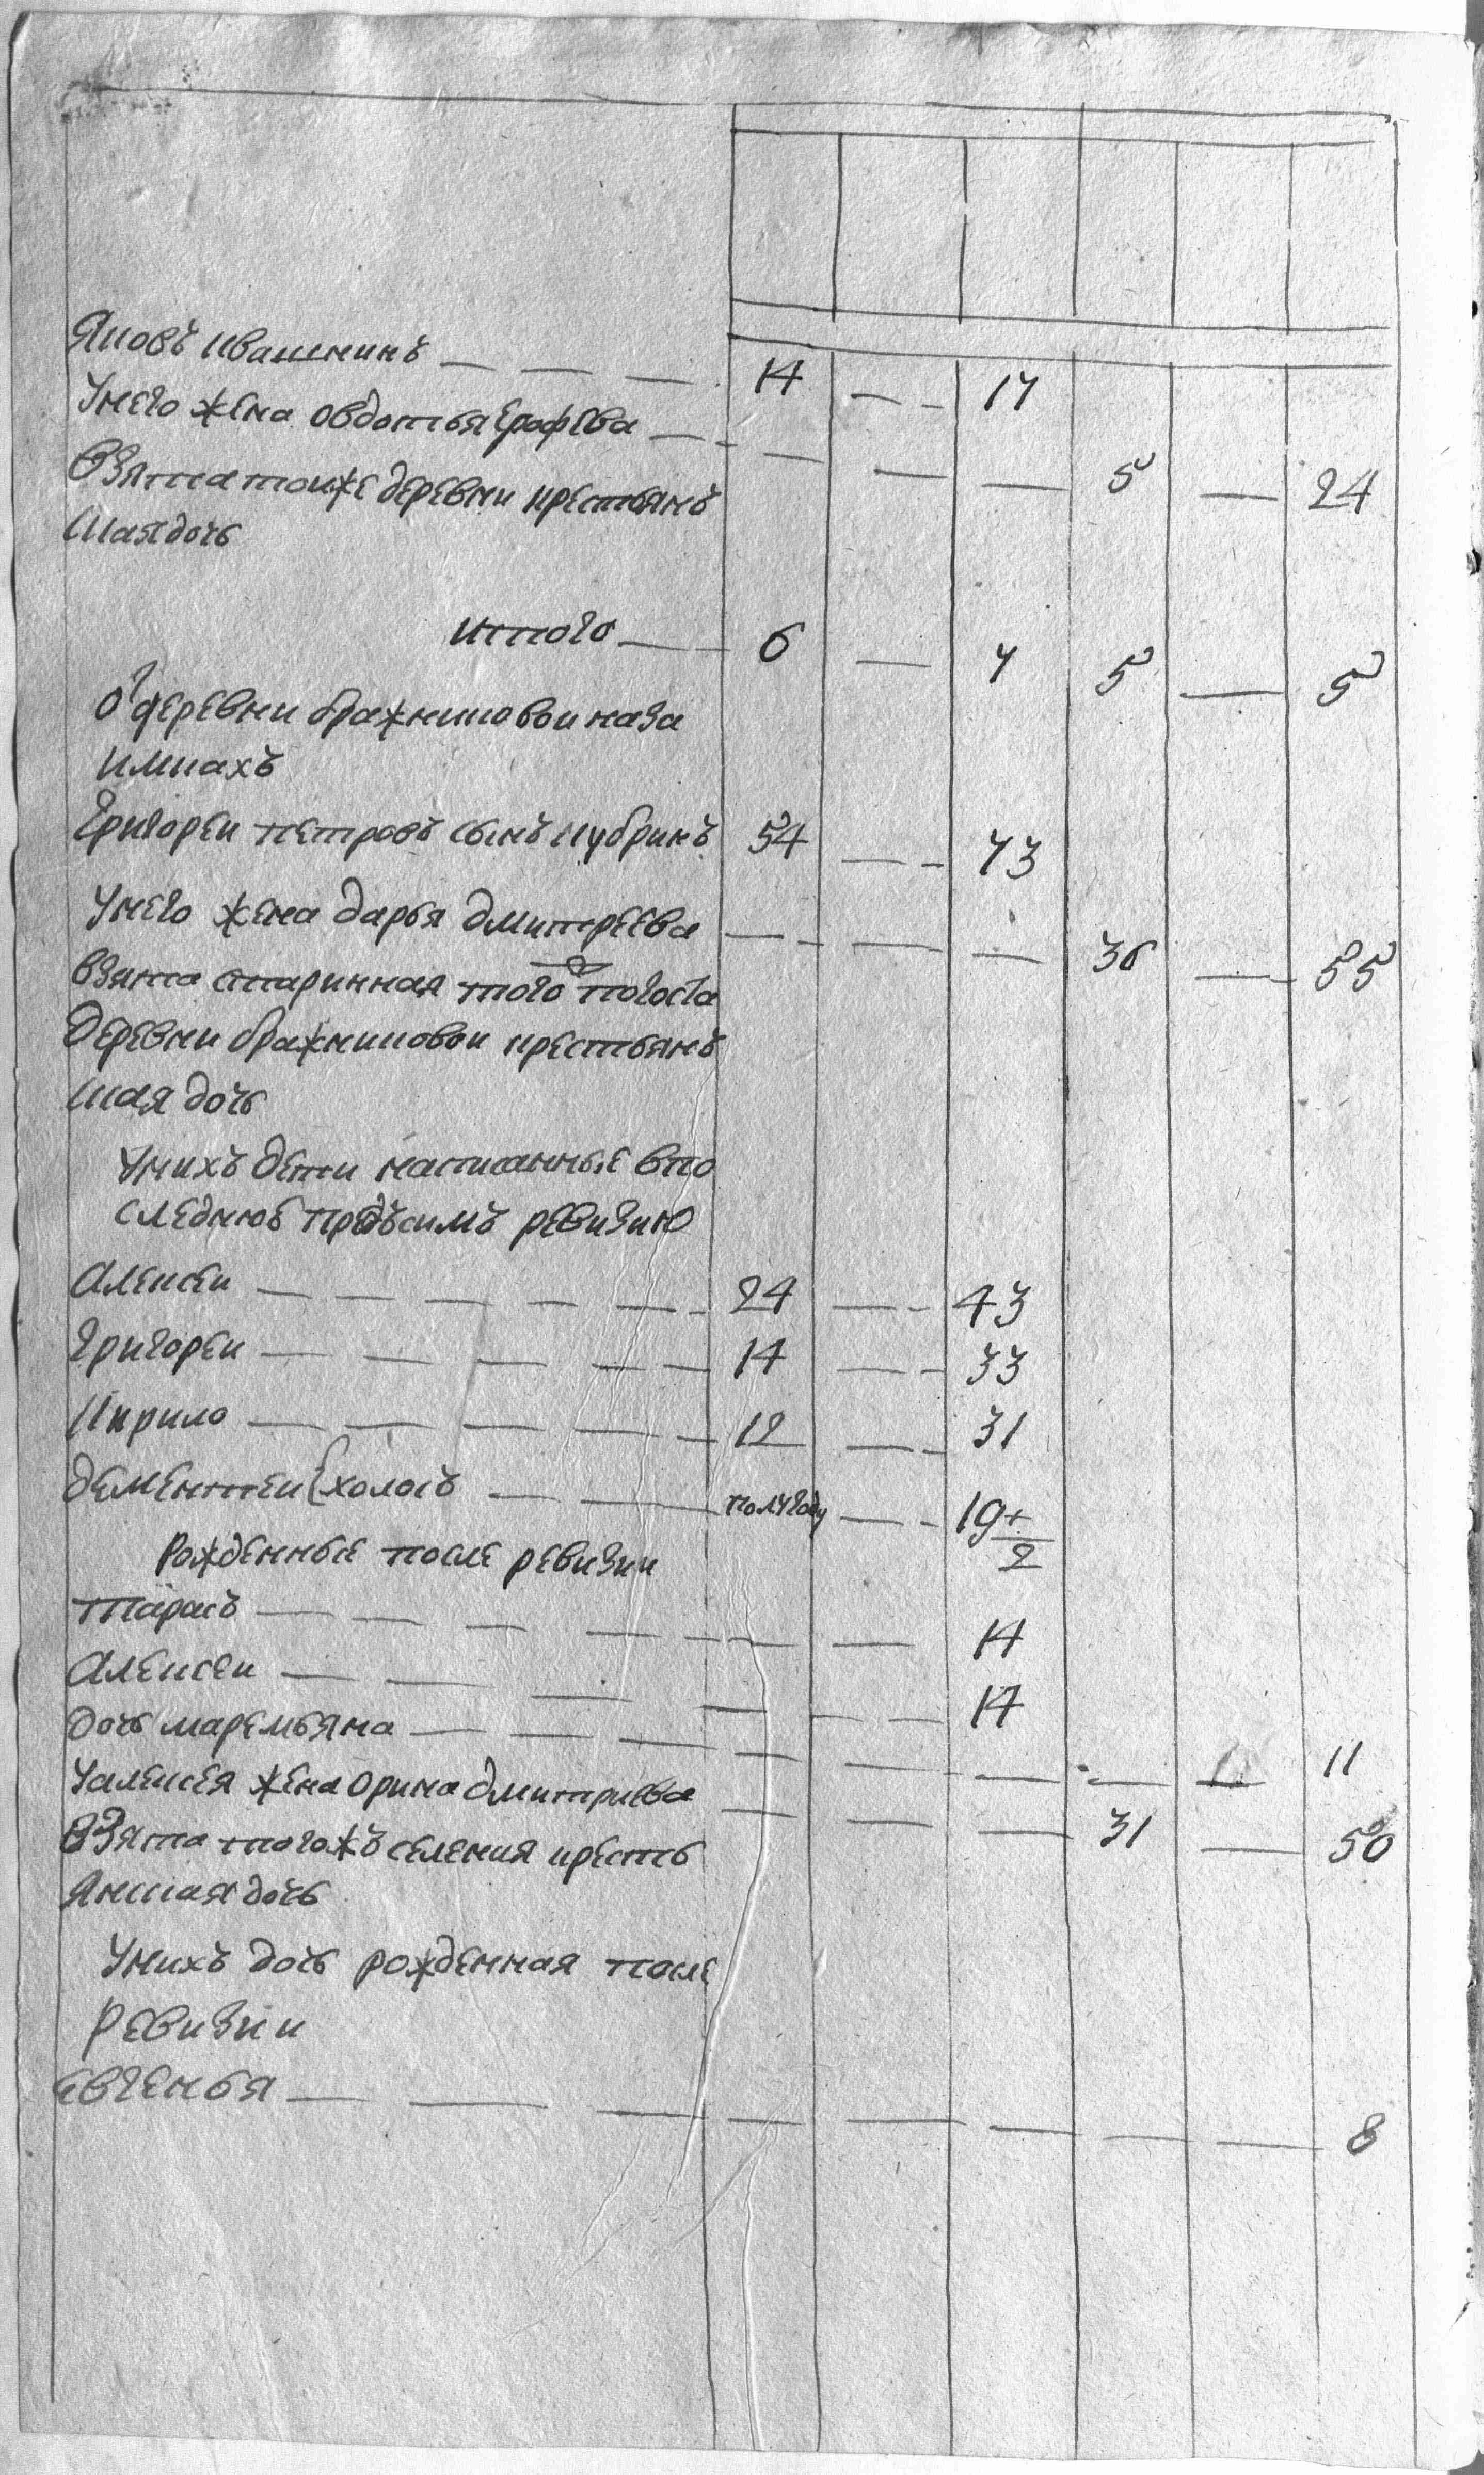 Яковъ ивашкинъ — — — 14 — — 17
Унего жена овдотья Ерофеева — — — — — 5 — 24
Взята тоиже деревни крестьянъ
скаядочь
итого — 6 — 7 5 — 5
деревни бражниковои наза
имкахъ
Григореи петровъ сынъ кубринъ 54 — — 73
Унего жена дарья дмитреева — — — — 36 — 55
взята старинная того погоста
деревни бражниковои крестьянъ
ская дочь
Унихъ дети написанные впо
следнюе предъсимъ ревизию
Алексеи — — — — — 24 — — 43
Григореи — — — — — 14 — — 33
Кирило — — — — — 12 — — 31
дементеи холосъ — — — полугоду — — 19 ½
Рожденные после ревизии
Тарасъ — — — — — — — 14
Алексеи — — — — — — 17
дочь маремьяна — — — — — — — — 11
Уалексея жена орина дмитриева — — — 31 — 50
Взята тогожъ селения кресть
янская дочь
Унихъ дочь рожденная после
Ревизии
евгенья — — — — — — — — 8